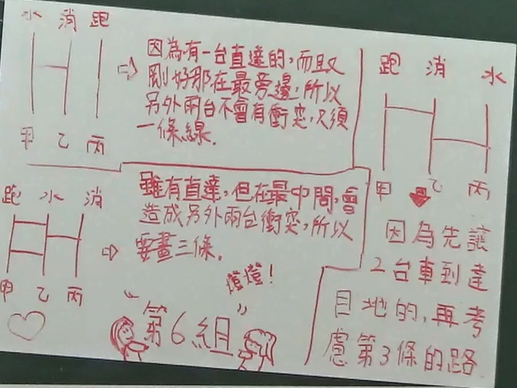 水 消 跑
甲 乙 丙
因為有一台直達的,而且又
剛好那在最旁邊,所以
另外兩台不會有衝突,只須
一條線.
跑 消 水
甲 乙 丙
因為先讓
2台車到達
目地的,再考
慮第3條的路
跑 水 消
甲 乙 丙
雖有直達,但在最中間,會
造成另外兩台衝突,所以
要畫三條.
噔噔!
"第6組"